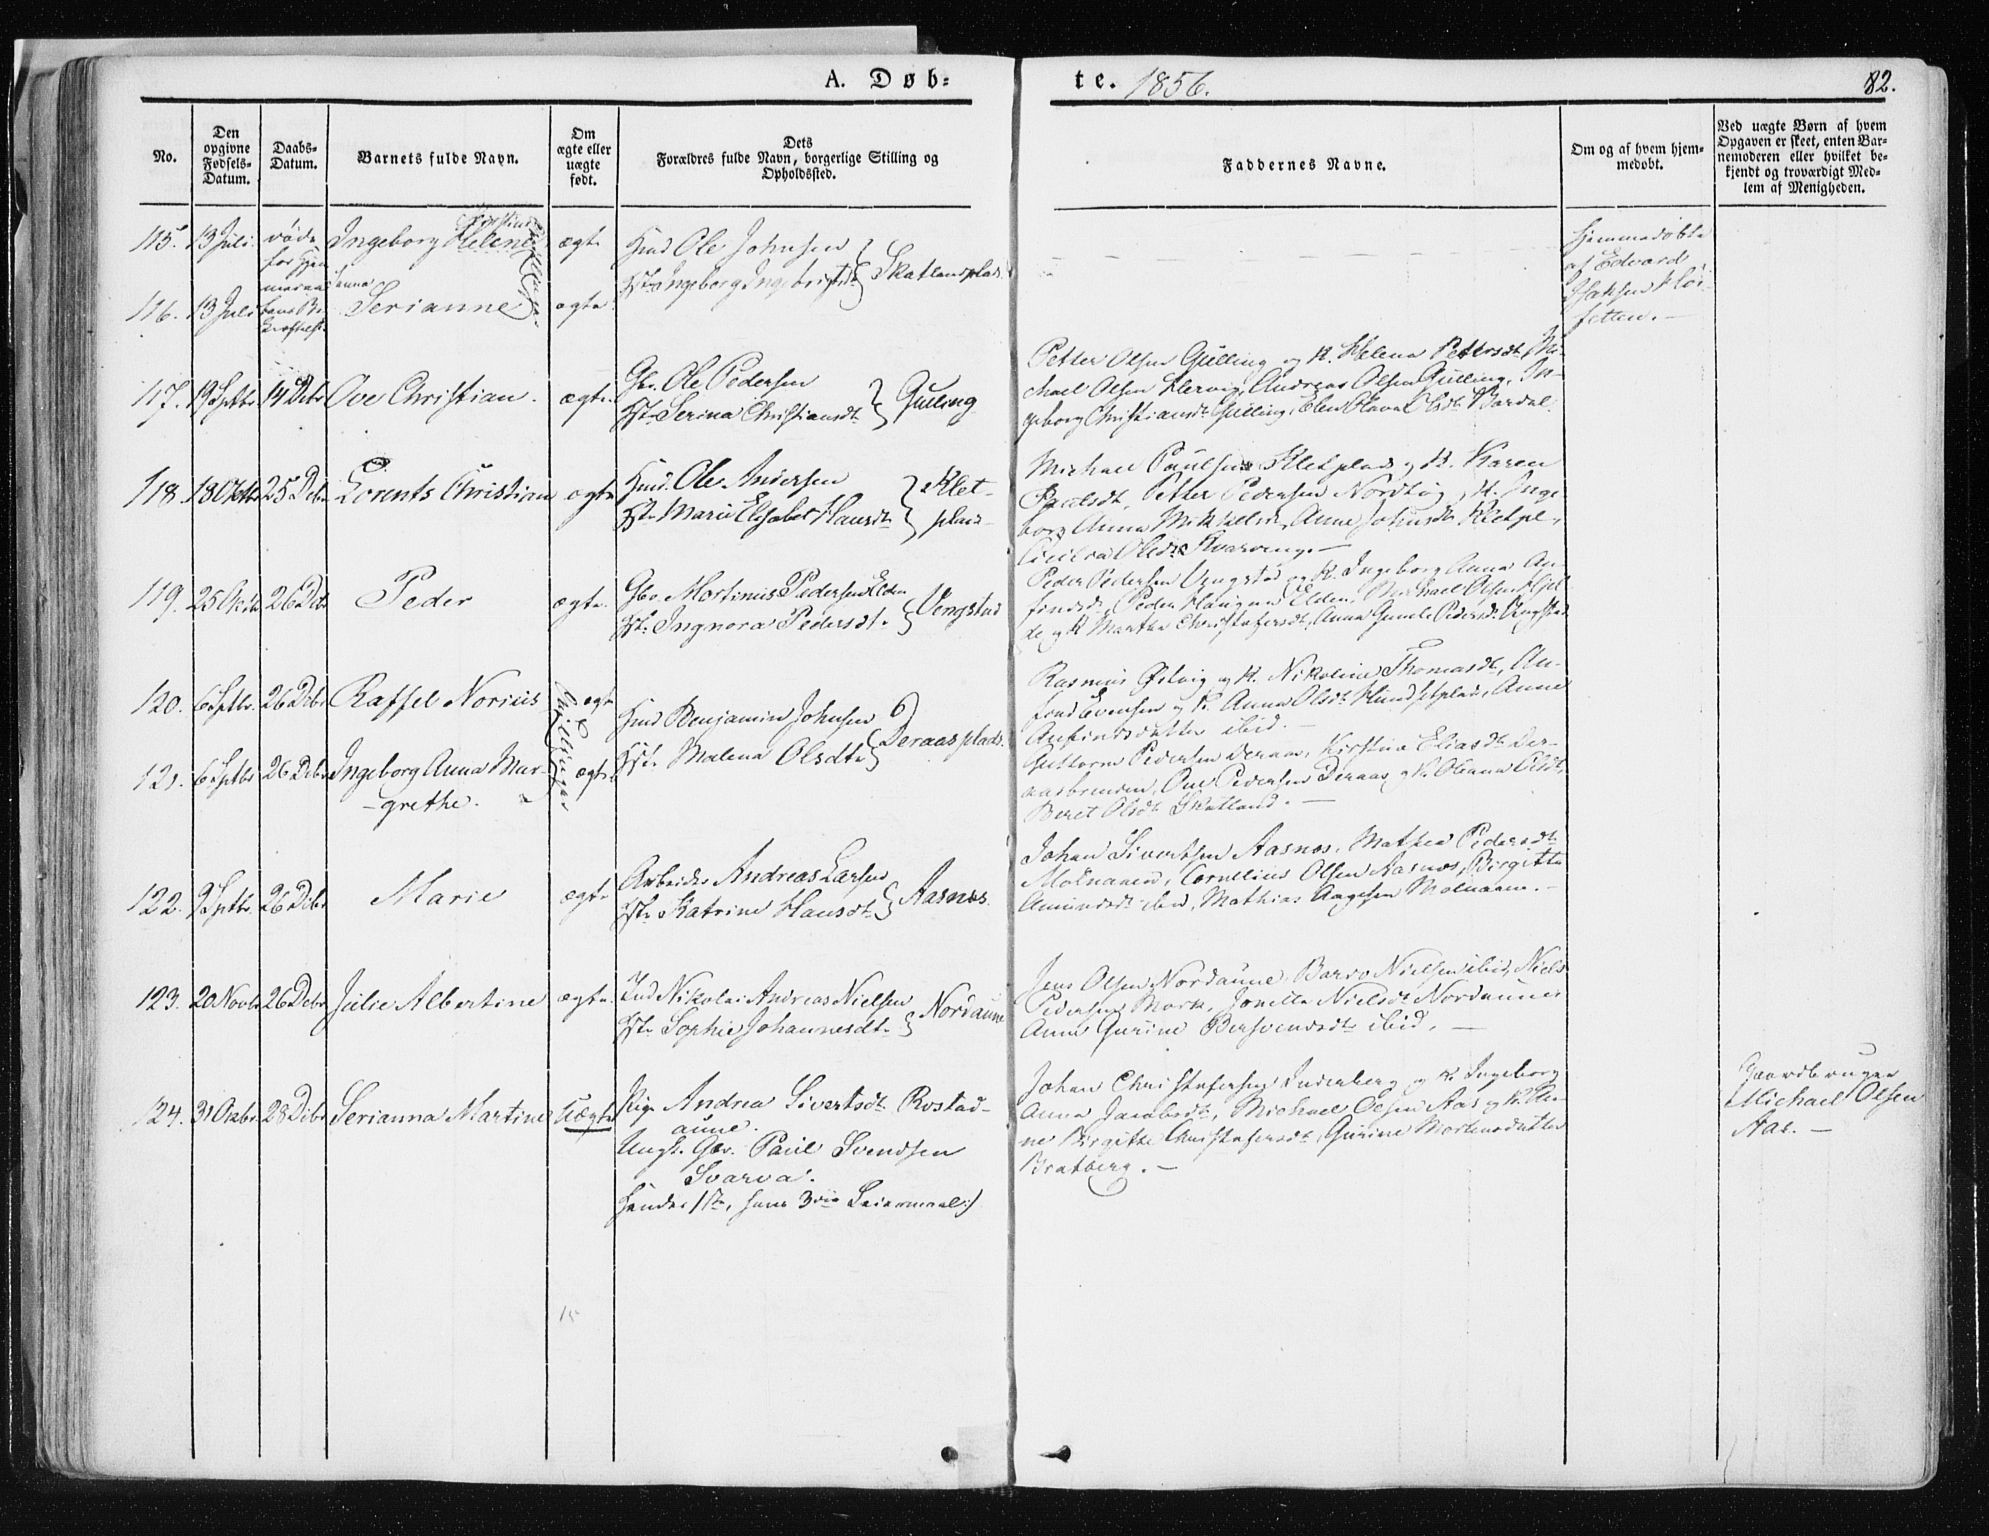 A. Døb= te. 1856. 82.
No.
Den opgivne Fødsels-Datum.
Daabs-Datum.
Barnets fulde Navn.
Om ægte eller uægte født.
Dets Forældres fulde Navn, borgerlige Stilling og Opholdssted.
Faddernes Navne.
Om og af hvem hjem=medobt.
Ved uægte Børn af hvem Opgaven er skeet, enten Bar=nemoderen eller hvilket be=kjendt og troværdigt Med=lem af Menigheden.
115. 13 Juli. døde før Ingeborg Helene ægte
Hmd Ole Johnsen
Hst. Ingeborg Ingebrigtsdt. } Skatlandplads
Hjemmedøbte
af Edvard
116. 13 Juli Serianne ægte
117. 19 Septbr 14 Debr Ove Christian. ægte
Gbr. Ole Pedersen
Hst. Serina Christiansdt. } Gulling
Petter Olsen Gulling og K. Helena Pettersdt, Mi-
chael Olsen Hervig, Andreas Olsen Gulling, In-
geborg Christiansdt. Gulling, Elen Olava Olsdt. Bardal.
118. 18 Oktbr 25 Debr Lorents Christian ægte
Hmd. Ole Andersen
Hst. Marie Elisabet Hansdt. } Klet-
plads
Michael Paulsen Kletplads og K. Karen
Paulsdt, Petter Pedersen Nordtøg, K. Inge-
borg Anna Mikkelsdt, Anne Johnsdt Kletpl.,
Olsdt. Kvarving.—
119. 25 Oktbr 26 Debr Peder ægte.
Gbr. Mortinus Pedersen Elden
Hst. Ingnora Pedersdt. } Vengstad
Peder Pedersen Vengstad og K. Ingeborg Anna An-
finsdt, Peder Haagensen Elden, Michael Olsen Hjel-
de og K Martha Christofersdt, Anna Gunile Pedersdt. Vengstad
120. 6 Septbr. 26 Debr Raffel Norius ægte
Tvillinger
Hmd Benjamin Johnsen
Hst. Malena Olsdtr } Deraasplads.
Rasmus Østvig og K. Nikoline Thomasdt, An-
find Evensen og K. Anna Olsdt. Hundsetplads, Anne
Anfindsdatter ibid.
121. 6 Septbr 26 Debr Ingeborg Anna Mar-
-grethe. ægte
Guttorm Pedersen Deraas, Kirstina Eliasdt. Der-
aasbrenden, Ove Pedersen Deraas og K. Oleana Olsdt,
Beret Olsdt. Skatland.—
122. 9 Septbr. 26 Debr Marie ægte
Arbeider Andreas Larsen
Hst. Katrine Hansdt. } Aasnæs.
Johan Sivertsen Aasnæs, Mathea Pedersdt.
Moenaaen, Cornelius Olsen Aasnæs, Birgitte
Amundsdt. ibid, Mathias Aagesen Moenaaen.—
123. 20 Novbr 26 Debr Julie Albertine ægte.
Ind Nikolai Andreas Nielsen
Hst. Sophie Johannesdt. } Nordaune
Jens Olsen Nordaune, Bardo Nielsen ibid, Niels
Pedersen Mork, Jonette Nielsdt. Nordaune
Anne Gurine Bersvendsdt. ibid. —
124. 31 Oktbr. 28 Debr Serianna Martine Uægte
Pige Andrea Sivertsdt. Rostad-
aune.
Ungk. Gbr. Paul Svendsen
Svarva.
Hendes 1ste, hans 3die Leiermaal.)
Johan Christofersen Inderberg og K. Ingeborg
Anna Jacobsdt., Michael Olsen Aas og K. Ele-
ne Birgitte Christofersdt, Gurine Mortensdatter
Bratberg.—
Gaardbruger
Michael Olsen
Aas.—